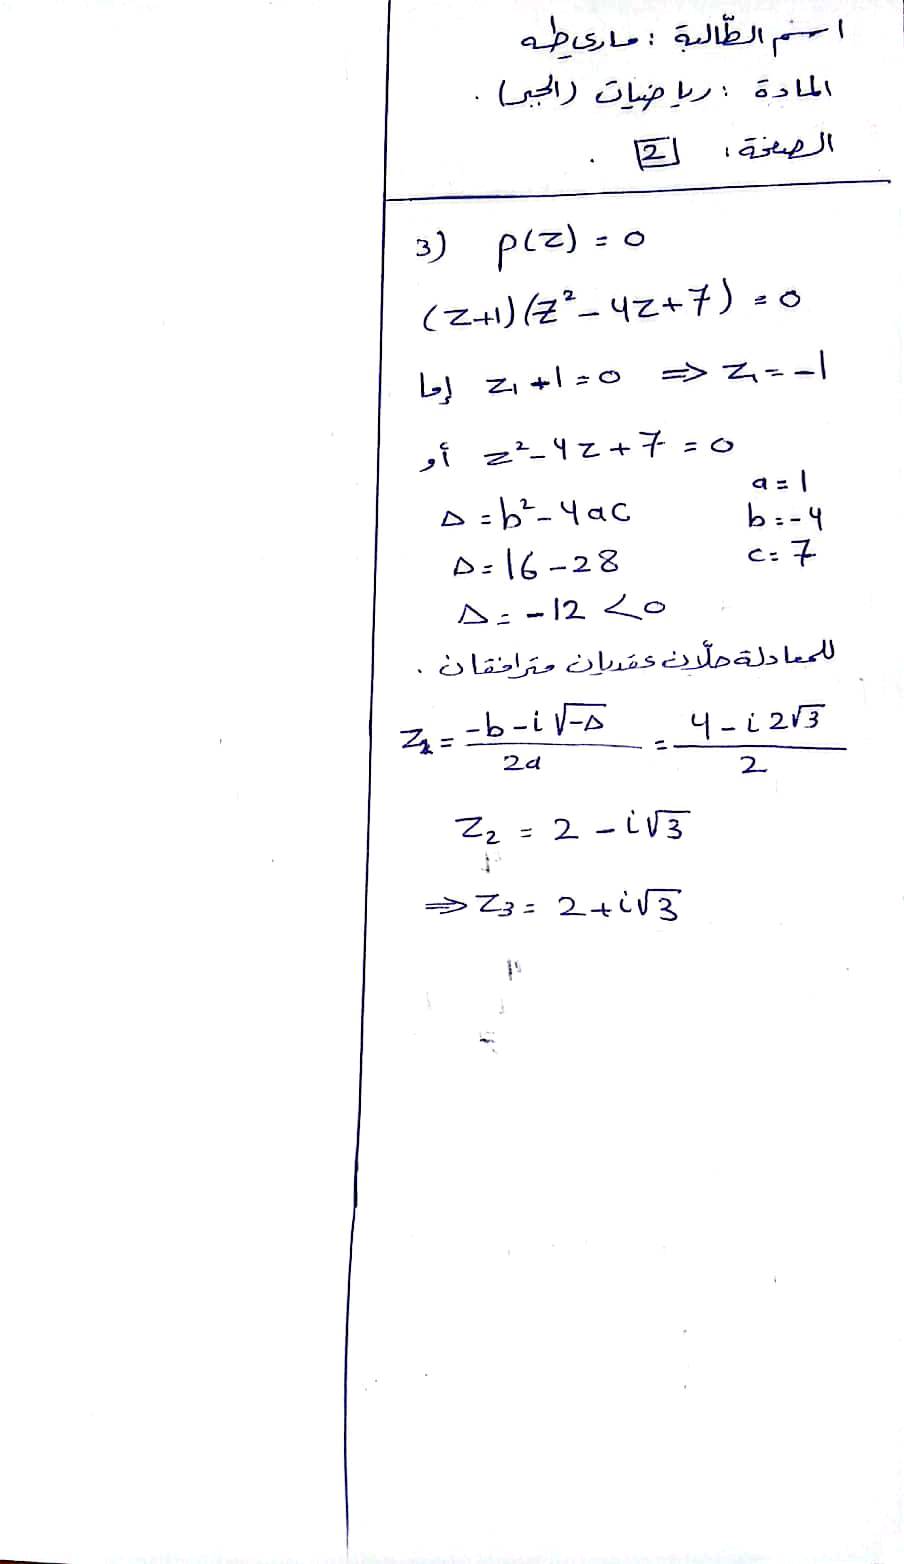 اسم الطّالبة : ماري طه
المادة : رياضيات (الجبر) .
الصفحة : 2 .
3) P(Z) = 0
(Z+1)(Z² - 4Z + 7) = 0
إما Z₁ + 1 = 0 ⇒ Z₁ = -1
أو Z² - 4Z + 7 = 0
a = 1
Δ = b² - 4ac b = -4
Δ = 16 - 28 c = 7
Δ = -12 < 0
للمعادلة حلّان عقديان مترافقان .
Z₂ = (-b - i√-Δ)/2a = (4 - i2√3)/2
Z₂ = 2 - i√3
⇒ Z₃ = 2 + i√3